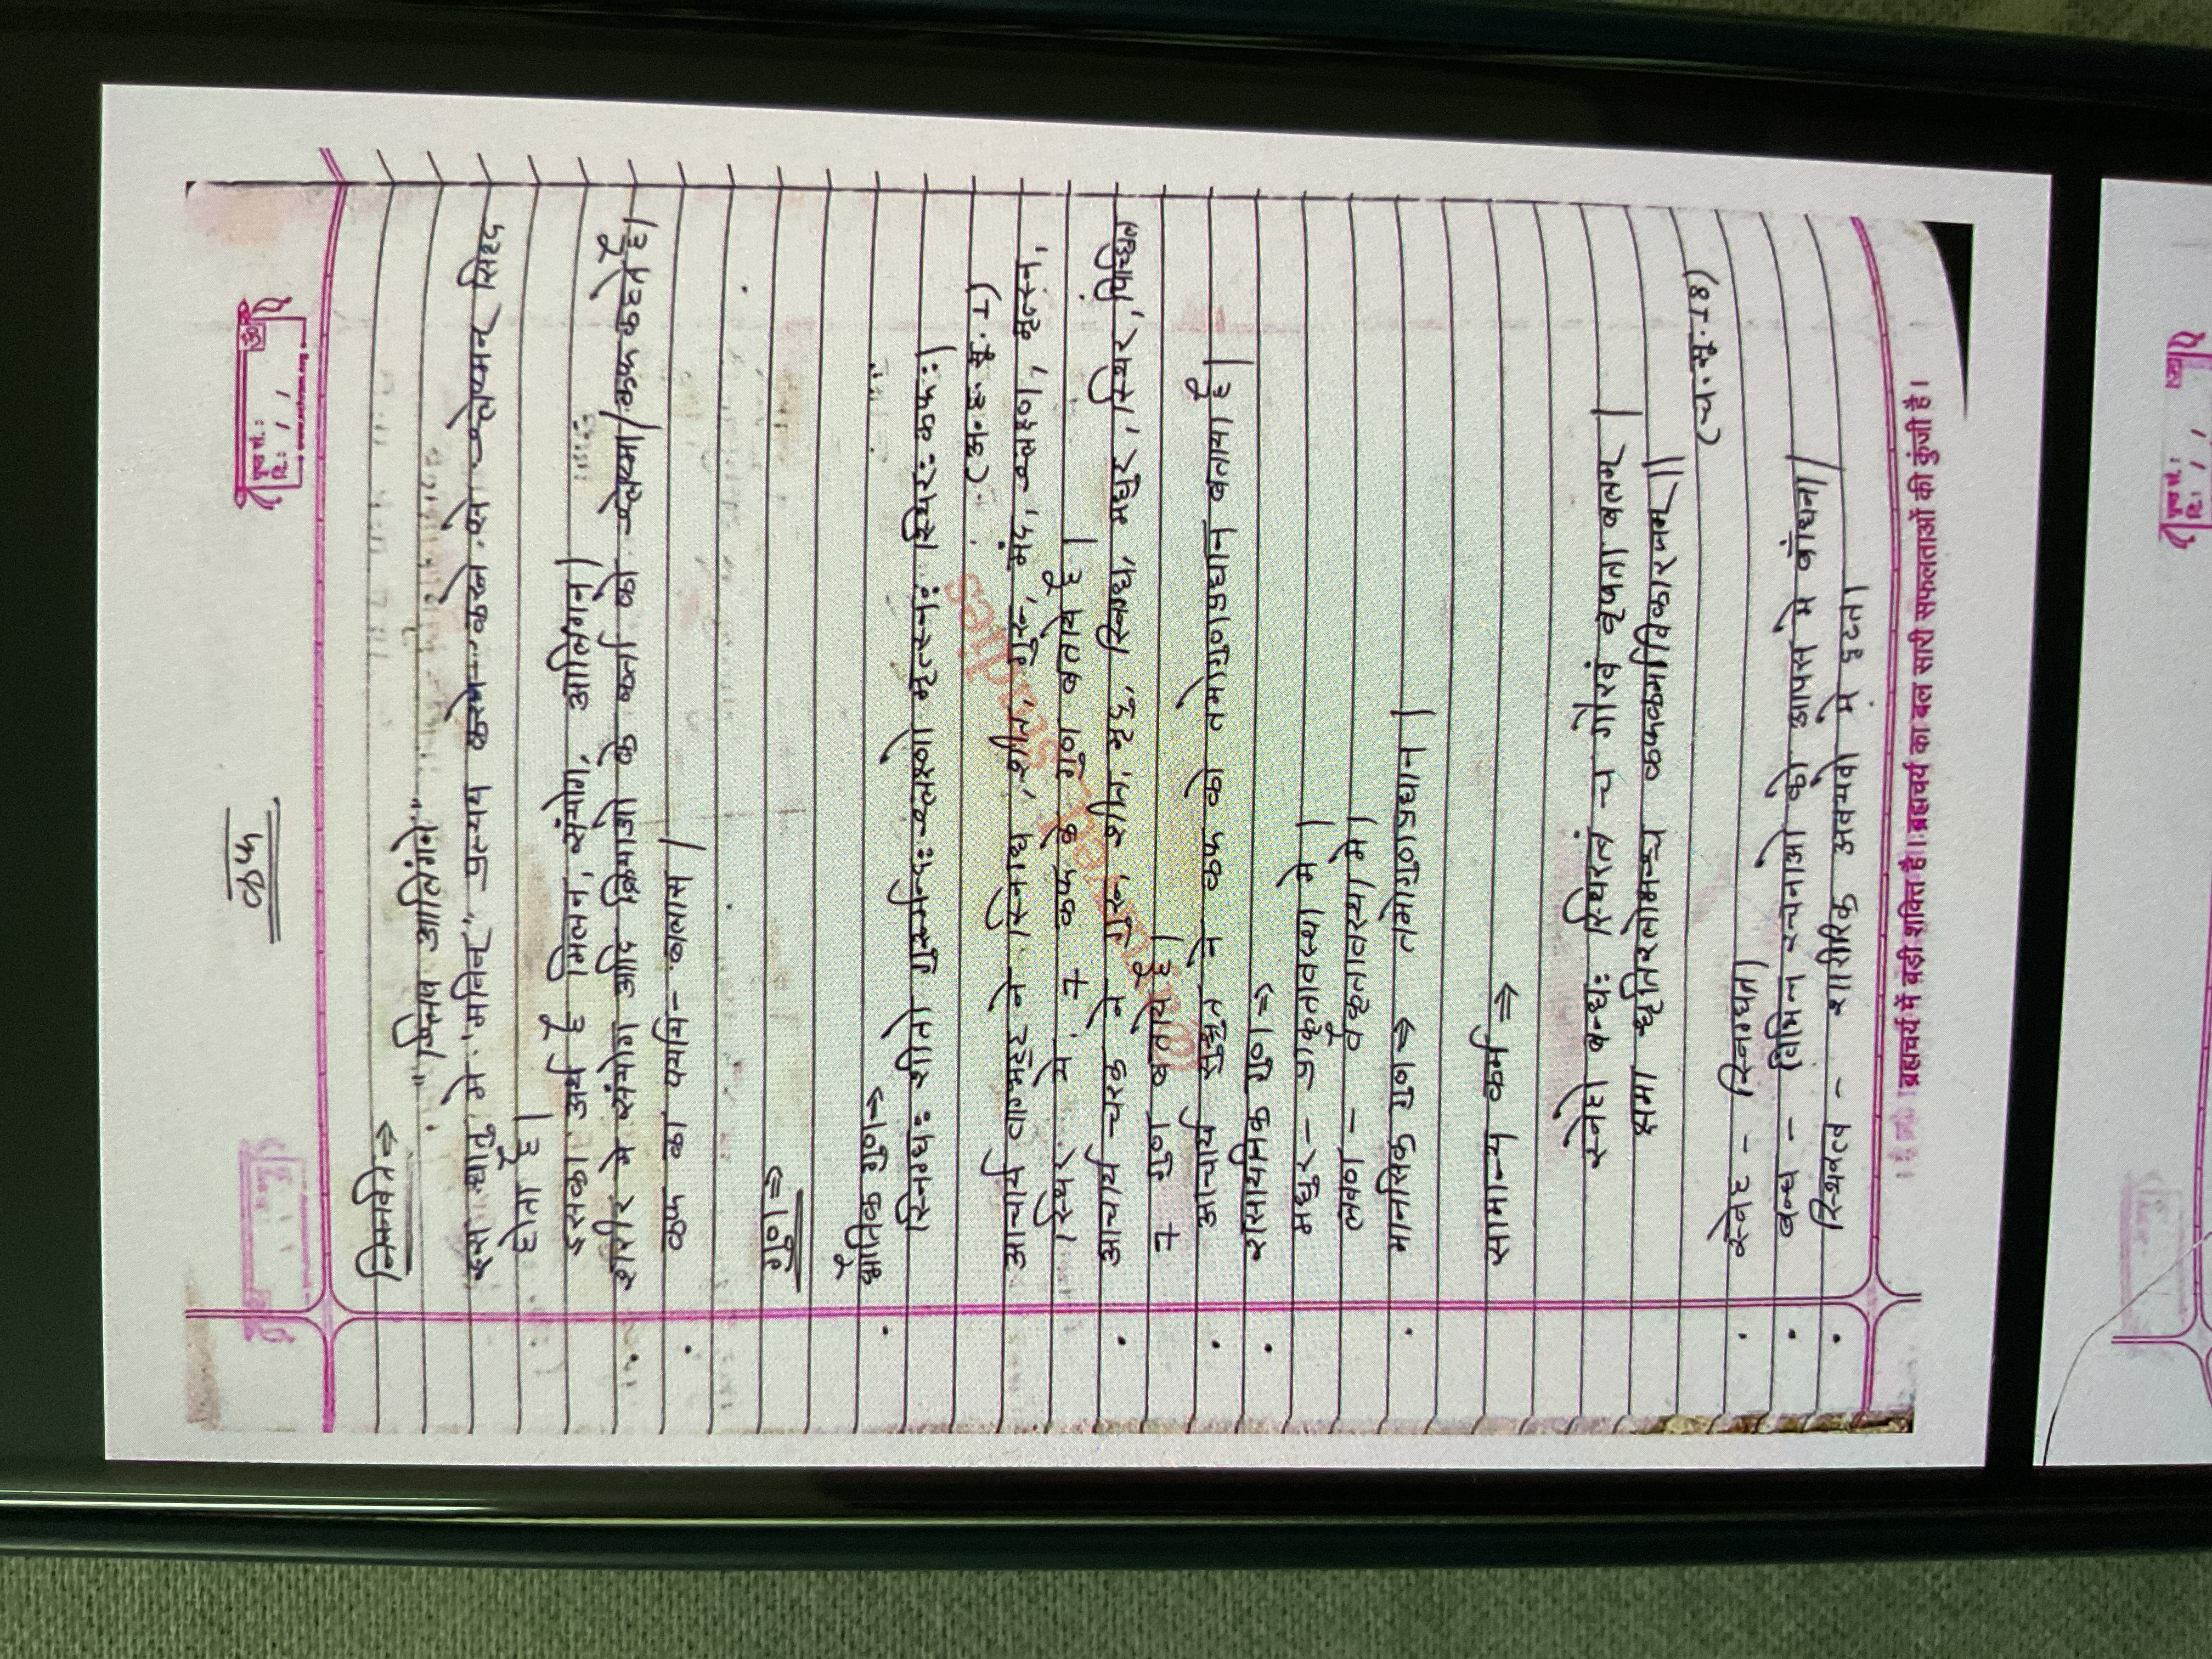 पृष्ठ सं.:
दि.: / /
कफ
निरूक्ति ⇒
"श्लिष आलिंगने"
इस धातु मे "मनिन्" प्रत्यय करने से श्लेष्मन् सिद्ध
होता है।
इसका अर्थ है मिलन, संयोग, आलिंगन।
शरीर मे संयोग आदि क्रियाओ के कर्ता को श्लेष्मा/कफ कहते है।
कफ का पर्याय - बलास।
गुण ⇒
• भौतिक गुण ⇒
स्निग्धः शीतो गुरूर्मन्दः श्लक्ष्णो मृत्स्नः स्थिरः कफः।
(अ.ह.सू.1)
आचार्य वाग्भट्ट ने स्निग्ध, शीत, गुरू, मंद, श्लक्ष्ण, मृत्स्न,
स्थिर ये 7 कफ के गुण बताये है।
• आचार्य चरक ने गुरू, शीत, मृदु, स्निग्ध, मधुर, स्थिर, पिच्छिल
7 गुण बताये है।
• आचार्य सुश्रुत ने कफ को तमोगुणप्रधान बताया है।
• रासायनिक गुण ⇒
मधुर - प्राकृतावस्था मे।
लवण - वैकृतावस्था मे।
• मानसिक गुण ⇒ तमोगुणप्रधान।
सामान्य कर्म ⇒
स्नेहो बन्धः स्थिरत्वं च गौरवं वृषता बलम्।
क्षमा धृतिरलोभश्च कफकर्माविकारजम्॥
(च.सू.18)
• स्नेह - स्निग्धता।
• बन्ध - विभिन्न रचनाओ को आपस मे बांधना।
• स्थिरत्व - शारीरिक अवयवो मे दृढ़ता।
। ब्रह्मचर्य में बड़ी शक्ति है। ब्रह्मचर्य का बल सारी सफलताओं की कुंजी है।
पृष्ठ सं.:
दि.: / /